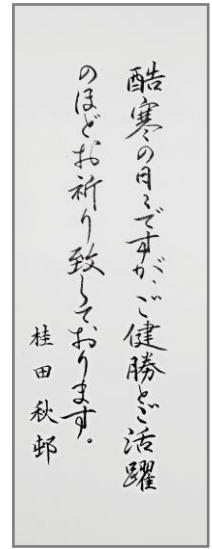 酷寒の日々ですが、ご健勝とご活躍
のほどお祈り致しております。
桂田秋邨